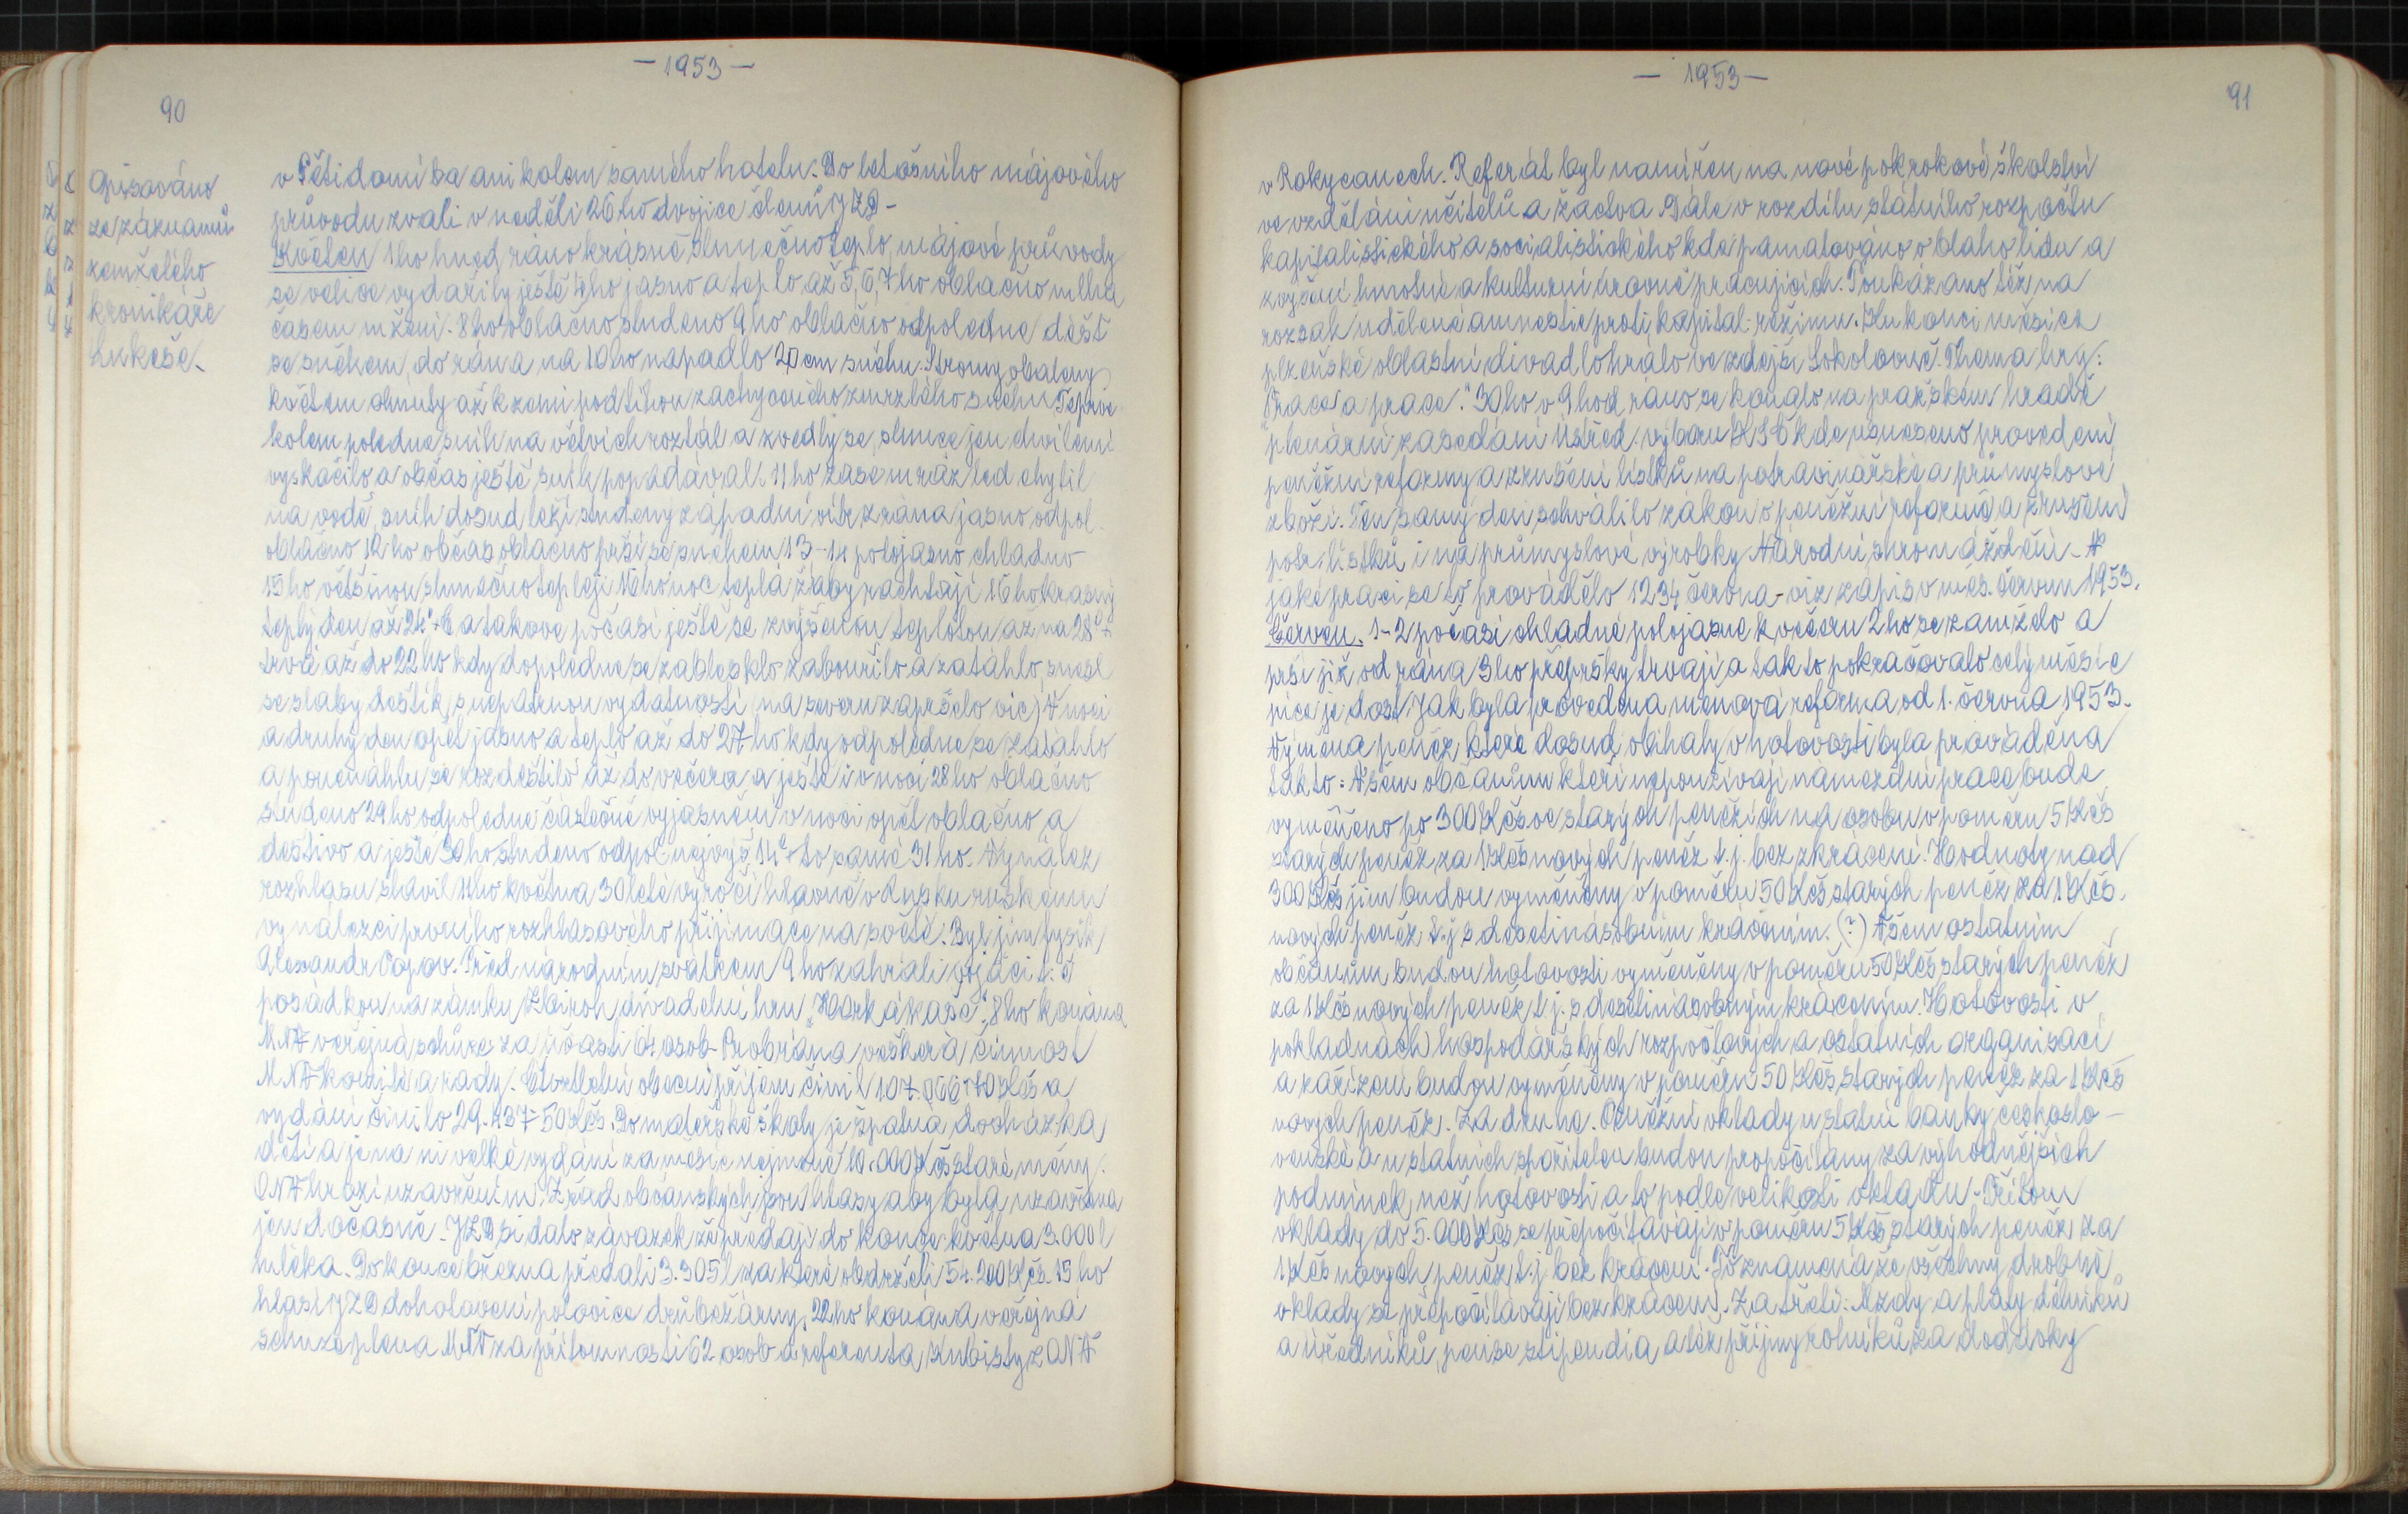 — 1953 —
90
Opisováno
ze záznamů
zemřelého
kronikáře
Lukeše.
v Pětidomí ba ani kolem samého hotelu. Do letošního májového
průvodu zvali v neděli 26ho dvojice členů JZD –
Květen 1ho hned ráno krásně slunečno teplo, májové průvody
se velice vydařily ještě 4ho jasno a teplo až 5, 6, 7ho oblačno mlha
časem mžení. 8ho oblačno studeno 9ho oblačno odpoledne déšť
se sněhem, do rána na 10ho napadlo 20 cm sněhu. Stromy obaleny
květem ohnuty až k zemi pod tíhou zachyceného zmrzlého sněhu Teprve
kolem poledne sníh na větvích roztál a zvedly se, slunce jen chvílemi
vyskočilo a občas ještě sníh popadával. 11ho zase mráz led chytil
na vodě, sníh dosud leží studený západní vítr zrána jasno odpol.
oblačno 12ho občas oblačno prší se sněhem 13–14 polojasno chladno
15ho většinou slunečno tepleji 16ho noc teplá žáby rachtají 16ho krásný
teplý den až 24°+C a takové počasí ještě se zvýšenou teplotou až na 28°+
trvá až do 22ho kdy dopoledne se zablesklo zabouřilo a zatáhlo, snesl
se slabý deštík s nepatrnou vydatností (na severu zapršelo víc) V noci
a druhý den opět jasno a teplo až do 27ho kdy odpoledne se zatáhlo
a ponenáhlu se rozdeštilo až do večera a ještě i v noci 28ho oblačno
studeno 29ho odpoledne částečné vyjasnění v noci opět oblačno a
deštivo a ještě 30ho studeno odpol nejvýš 14°+ to samé 31ho. Vynález
rozhlasu slavil 7ho května 30leté výročí hlavně v Rusku ruskému
vynálezci prvního rozhlasového přijímače na světě. Byl jím fysik
Alexandr Popov. Před národním svátkem 9ho zahráli vojáci t. č.
posádkou na zámku Zbiroh divadelní hru „Horká kaše“, 8ho konána
MNV veřejná schůze za účasti 64 osob. Probrána veškerá činnost
MNV komité a rady. Čtvrtletní obecní příjem činil 107.066 70 Kčs a
vydání činilo 29.437–50 Kčs. Do mateřské školy je špatná docházka
dětí a je na ni velké vydání za měsíc nejméně 10.000 Kčs staré měny.
ONV hrozí uzavřením. Z řad občanských jsou hlasy aby byla uzavřena
jen dočasně. JZD si dalo závazek že předají do konce května 3.000 l
mléka. Do konce března předali 3.305 l za které obdrželi 54.200 Kčs. 15ho
hlásí JZD dohotovení polovice drůbežárny. 22ho konána veřejná
schuze plena MNV za přítomnosti 62 osob a referenta, z ONV
— 1953 —
91
v Rokycanech. Referát byl namířen na nové pokrokové školství
ve vzdělání učitelů a žactva. Dále v rozdílu státního rozpočtu
kapitalistického a socialistického kde pamatováno o blaho lidu a
zvýšení hmotné a kulturní úrovně pracujících. Poukázáno též na
rozsah udělené amnestie proti kapital. režimu. Ku konci měsíce
plzeňské oblastní divadlo hrálo ve zdejší Sokolovně. Thema hry:
„Práce a práce.“ 30ho v 9 hod ráno se konalo na pražském hradě
plenární zasedání Ústřed. výboru KSČ kde usneseno provedení
peněžní reformy a zrušení lístků na potravinářské a průmyslové
zboží. Ten samý den schválilo zákon o peněžní reformě a zrušení
potr. lístků i na průmyslové výrobky Národní shromáždění. V
jaké praxi se to provádělo 1 2 3 4 června – viz zápis v měs. červnu 1953.
Červen. 1–2 počasí chladné polojasné k večeru 2ho se zamželo a
prší již od rána 3ho přepršky trvají a tak to pokračovalo celý měsíc
píce je dost. Jak byla provedena měnová reforma od 1. června 1953.
Výměna peněz které dosud obíhaly v hotovosti byla prováděna
takto: Všem občanům kteří nepoužívají námezdní práce bude
vyměněno po 300 Kčs ve starých penězích na osobu v poměru 5 Kčs
starých peněz za 1 Kčs nových peněz t. j. bez zkrácení. Hodnoty nad
300 Kčs jim budou vyměněny v poměru 50 Kčs starých peněz za 1 Kčs.
nových peněz t. j. s desetinásobním krácením. (?) Všem ostatním
občanům budou hotovosti vyměněny v poměru 50 Kčs starých peněz
za 1 Kčs nových peněz t. j. s desetinásobným krácením. Hotovosti v
pokladnách hospodářských rozpočtových a ostatních organisací
a zařízení budou vyměněny v poměru 50 Kčs starých peněz za 1 Kčs
nových peněz. Za druhé. Peněžní vklady u státní banky českoslo–
venské a u státních spořitelen budou propočítány za výhodnějších
podmínek, než hotovosti a to podle velikosti vkladu. Přitom
vklady do 5.000 Kčs se přepočítávají v poměru 5 Kčs starých peněz za
1 Kčs nových peněz t. j. bez krácení. To znamená že všechny drobné
vklady se přepočítávají bez krácení. Za třetí: Mzdy a platy dělníků
a úředníků, pense stipendia a též příjmy rolníků za dodávky